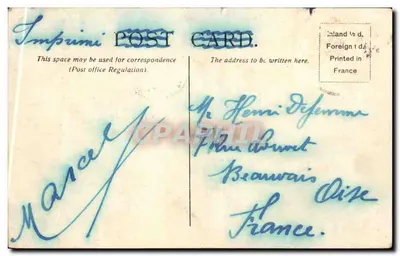 Imprimé POST CARD.
This space may be used for correspondence
(Post office Regulation).
The address to be written here.
Inland ½d,
Foreign 1d.
Printed in
France
Marcel
Mr Henri
7 Rue
Beauvais
Oise
France.
CPAPHIL